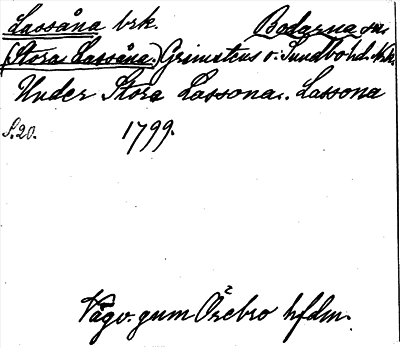 Lassåna brk. Bodarna sn.
(Stora Lassåna.) Grimstens o. Sundbo hd. Nrk.
Under Stora Lassona. Lassona
S. 20. 1799.
Vågv. gum Örebro hfdm.